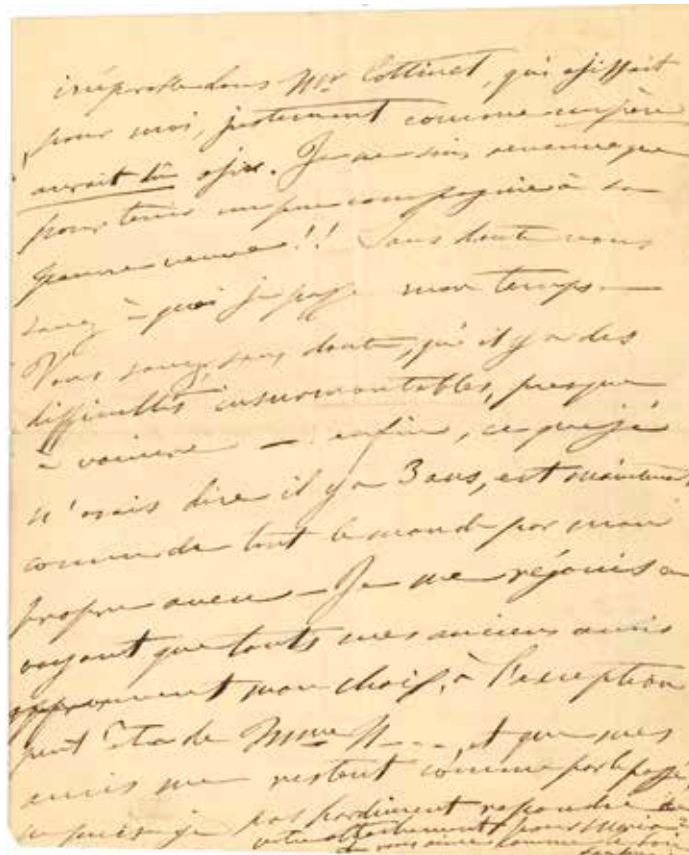 dans Mr Cottinet, qui agissait
pour moi, justement comme un père
aurait dû agir. Je ne suis revenue que
pour tenir un peu compagnie à sa
pauvre veuve!! Sans doute vous
savez à quoi je passe mon temps —
Vous savez, sans doute, qu'il y a des
difficultés insurmontables, presque
à vaincre — enfin, ce que je
n'osais dire il y a 3 ans, est maintenant
connu de tout le monde par mon
propre aveu — Je me réjouis en
voyant que touts mes anciens amis
approuvent mon choix, à l'exception
peut être de Mme H---, et que mes
amis me restent comme par le passé,
je pas repondre
votre attachement pour